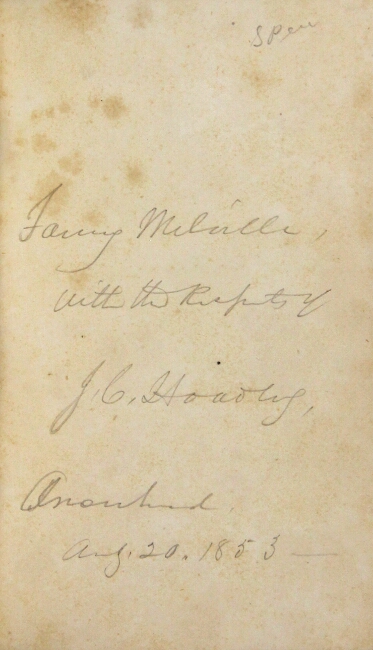 Fanny Melville,
with the Respects of
J. C. Hoadley,
Arrowhead.
Aug. 20. 1853 —